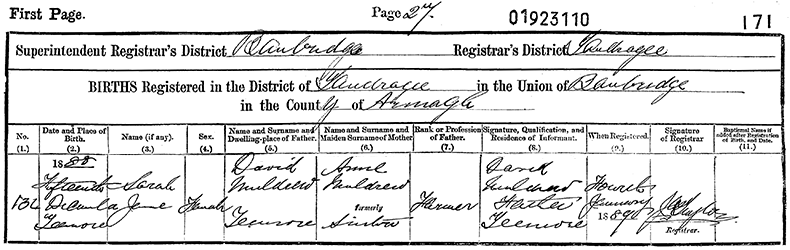 First Page. Page 27. 01923110 171
Superintendent Registrar's District Banbridge Registrar's District Tandragee
BIRTHS Registered in the District of Tandragee in the Union of Banbridge
in the County of Armagh
No. (1.) Date and Place of Birth. (2.) Name (if any). (3.) Sex. (4.) Name and Surname and Dwelling-place of Father. (5.) Name and Surname and Maiden Surname of Mother (6.) Rank or Profession of Father. (7.) Signature, Qualification, and Residence of Informant. (8.) When Registered. (9.) Signature of Registrar (10.) Baptismal Name if added after Registration of Birth, and Date. (11.)
1888 David Anne David
Fifteenth Sarah Muldrew Muldrew Muldrew Fourth
131 December Jane Female formerly Farmer Father January
Teemore Teemore Sinton Teemore 1889
Registrar.